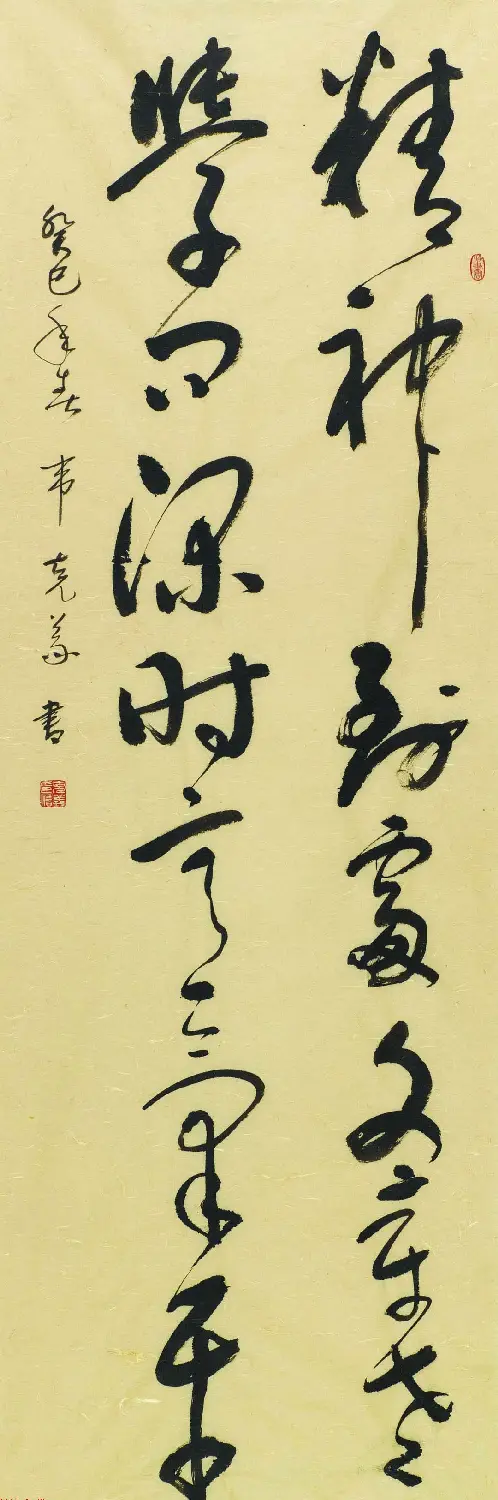 精神到處文章老
學问深时意氣平
癸巳年春 韦克義 書